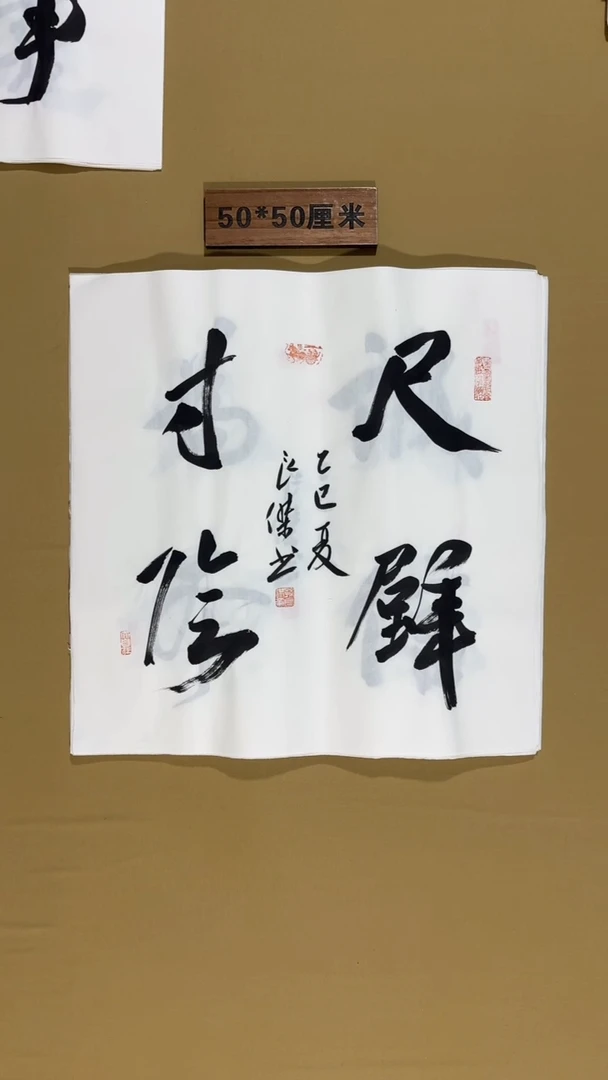 50*50厘米
尺璧
寸陰
乙巳夏
傑书